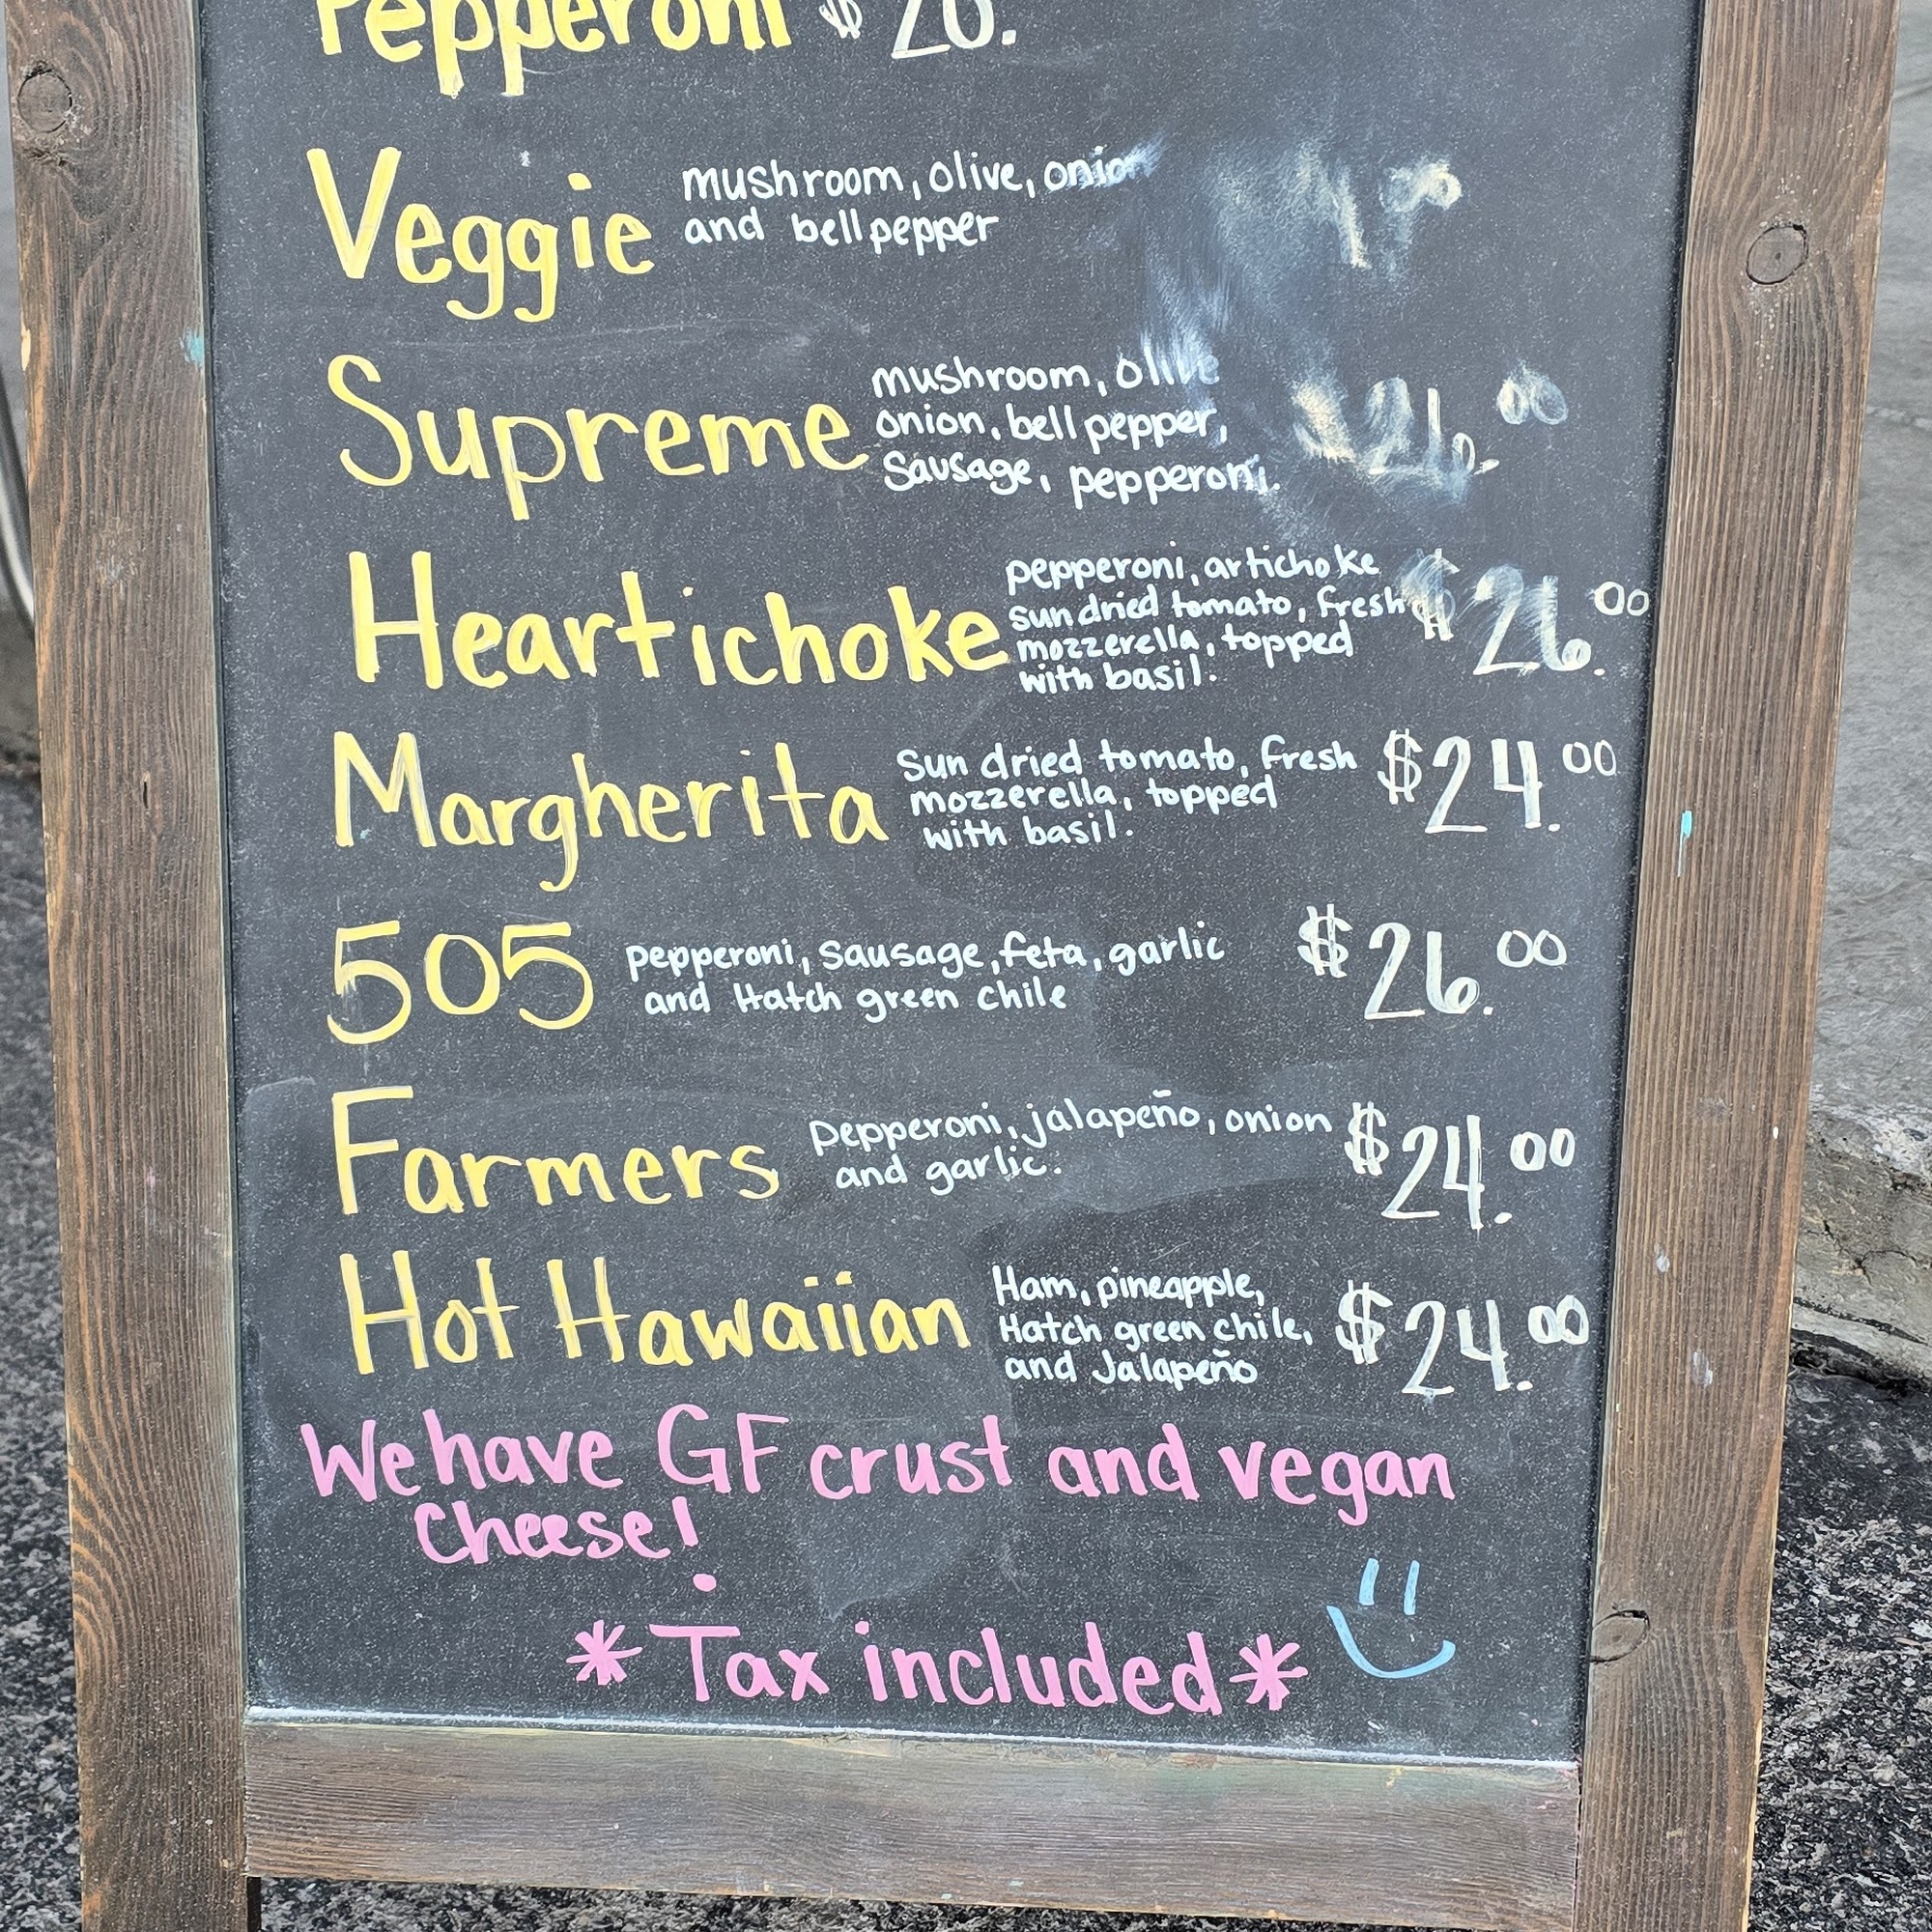 Pepperoni $20.
Veggie mushroom, olive, onion
and bell pepper
Supreme mushroom, olive
onion, bell pepper,
Sausage, pepperoni. $26.00
Heartichoke pepperoni, artichoke
sundried tomato, fresh
mozzerella, topped
with basil. $26.00
Margherita Sun dried tomato, fresh
mozzerella, topped
with basil. $24.00
505 Pepperoni, Sausage, feta, garlic
and Hatch green chile $26.00
Farmers Pepperoni, jalapeño, onion
and garlic. $24.00
Hot Hawaiian Ham, pineapple,
Hatch green chile,
and Jalapeño $24.00
We have GF crust and vegan
Cheese!
*Tax included*